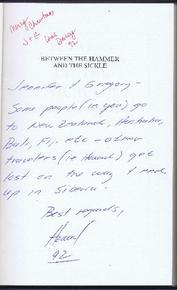 Merry Christmas
J & G Love Darcy
92
BETWEEN THE HAMMER
AND THE SICKLE
Jennifer & Gregory -
Some people (ie you) go
to New Zealand, Australia,
Bali, Fiji etc - other
travelers (ie Howard) get
lost on the way & end
up in Siberia.
Best regards,
Howard
92